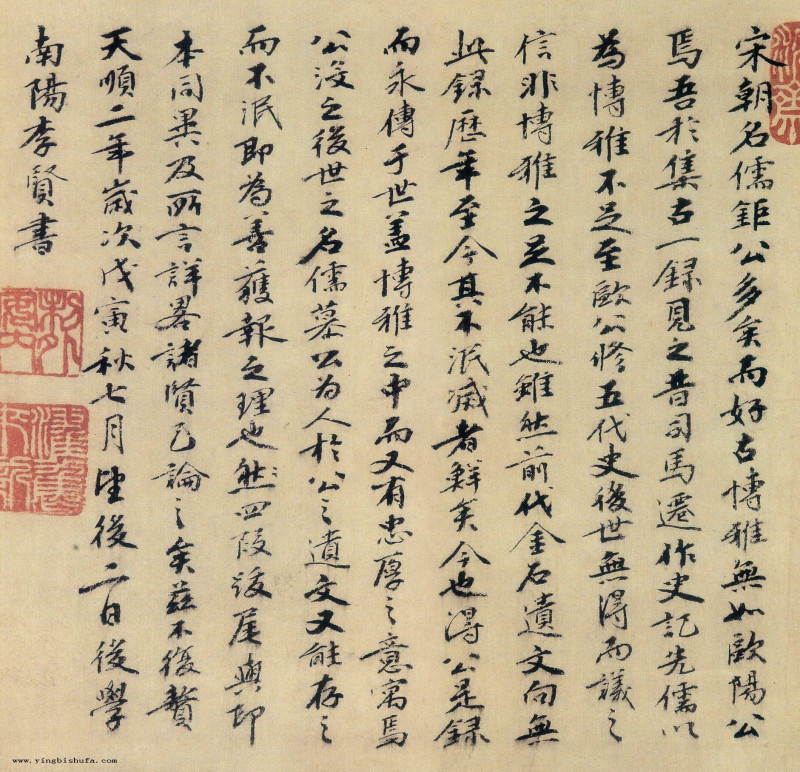 宋朝名儒鉅公多矣而好古博雅無如歐陽公
焉吾於集古一録見之昔司馬遷作史記先儒以
為博雅不足至歐公修五代史後世無得而議之
信非博雅之足不能也雖然前代金石遺文向無
此録歷年至今其不泯滅者鮮矣今也得公是録
而永傳于世蓋博雅之中而又有忠厚之意寓焉
公沒之後世之名儒慕公為人於公之遺文又能存之
而不泯即為善獲報之理也然四段跋尾與印
本同異及所言詳畧諸賢已論之矣茲不復贅
天順二年歲次戊寅秋七月望後二日後學
南陽李賢書
www.yingbishufa.com